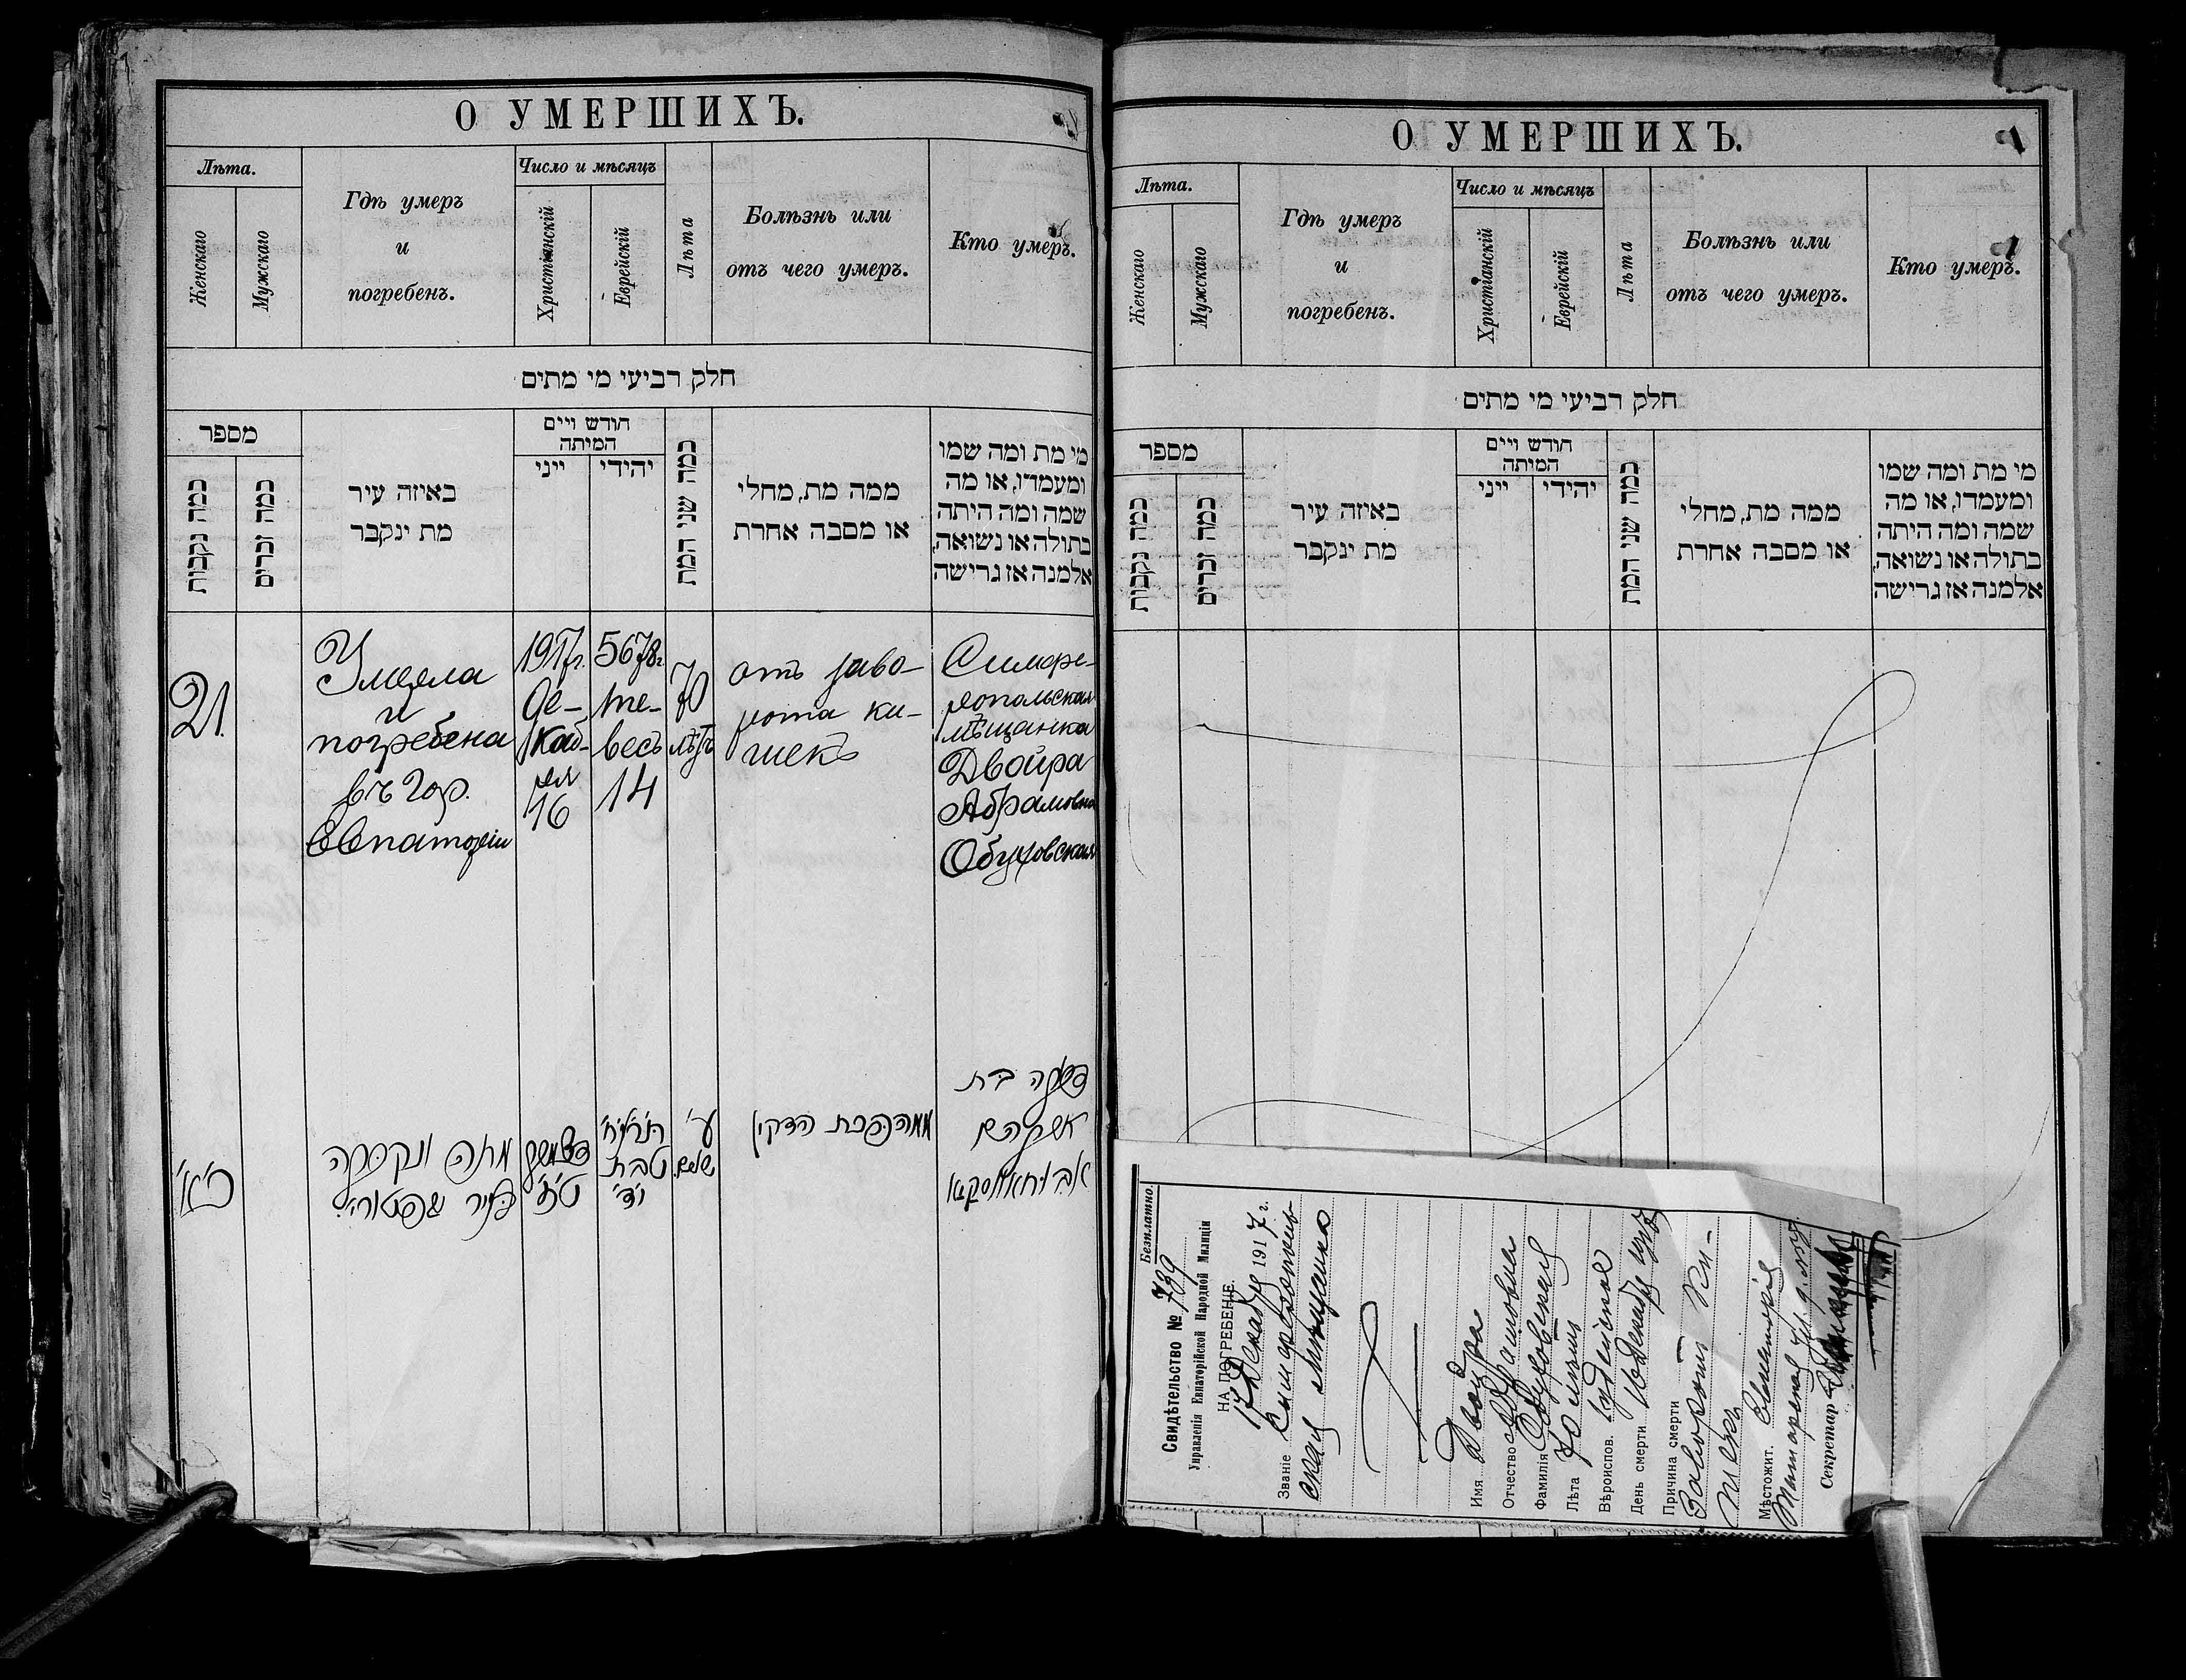 О УМЕРШИХЪ.
Лѣта.
Женскаго
Мужскаго
Гдѣ умеръ
и
погребенъ.
Число и мѣсяцъ
Христіанскій
Еврейскій
Лѣта
Болѣзнь или
отъ чего умеръ.
Кто умеръ.
חלק רביעי מי מתים
מספר
כמה נקבות
כמה זכרים
באיזה עיר
מת ינקבר
חודש ויים
המיתה
ייני
יהידי
כמה שני המת
ממה מת, מחלי
או מסבה אחרת
מי מת ומה שמו
ומעמדו, או מה
שמה ומה היתה
בתולה או נשואה,
אלמנה אז גרישה
21.
Умерла
и
погребена
въ гор.
Евпаторіи
1917г.
Де-
каб-
ря
16
5678г.
те-
весъ
14
70
лѣтъ
отъ заво-
рота ки-
шекъ
Симфе-
ропольская
мѣщанка
Двойра
Абрамовна
Обуховская
כ'א'
מתה ונקברה
בעיר
ט'ז'
טבת
י'ד'
ע'
שנים
הדקין
בת
אברהם
О УМЕРШИХЪ.
Лѣта.
Женскаго
Мужскаго
Гдѣ умеръ
и
погребенъ.
Число и мѣсяцъ
Христіанскій
Еврейскій
Лѣта
Болѣзнь или
отъ чего умеръ.
Кто умеръ.
חלק רביעי מי מתים
מספר
כמה נקבות
כמה זכרים
באיזה עיר
מת ינקבר
חודש ויים
המיתה
ייני
יהידי
כמה שני המת
ממה מת, מחלי
או מסבה אחרת
מי מת ומה שמו
ומעמדו, או מה
שמה ומה היתה
בתולה או נשואה,
אלמנה אז גרישה
Безплатно.
Свидѣтельство № 739
Управленія Евпаторійской Народной Милиціи
НА ПОГРЕБЕНІЕ.
17 Декабря 1917 г.
Званіе Симферополь-
ская мѣщанка
Имя Двойра
Отчество Абрамовна
Фамилія Обуховская
Лѣта 70 лѣтъ
Вѣроиспов. Іудейское
День смерти 16 Декабря
Причина смерти
Заворотъ Ки-
шекъ
Мѣстожит. Евпаторія
Секретарь